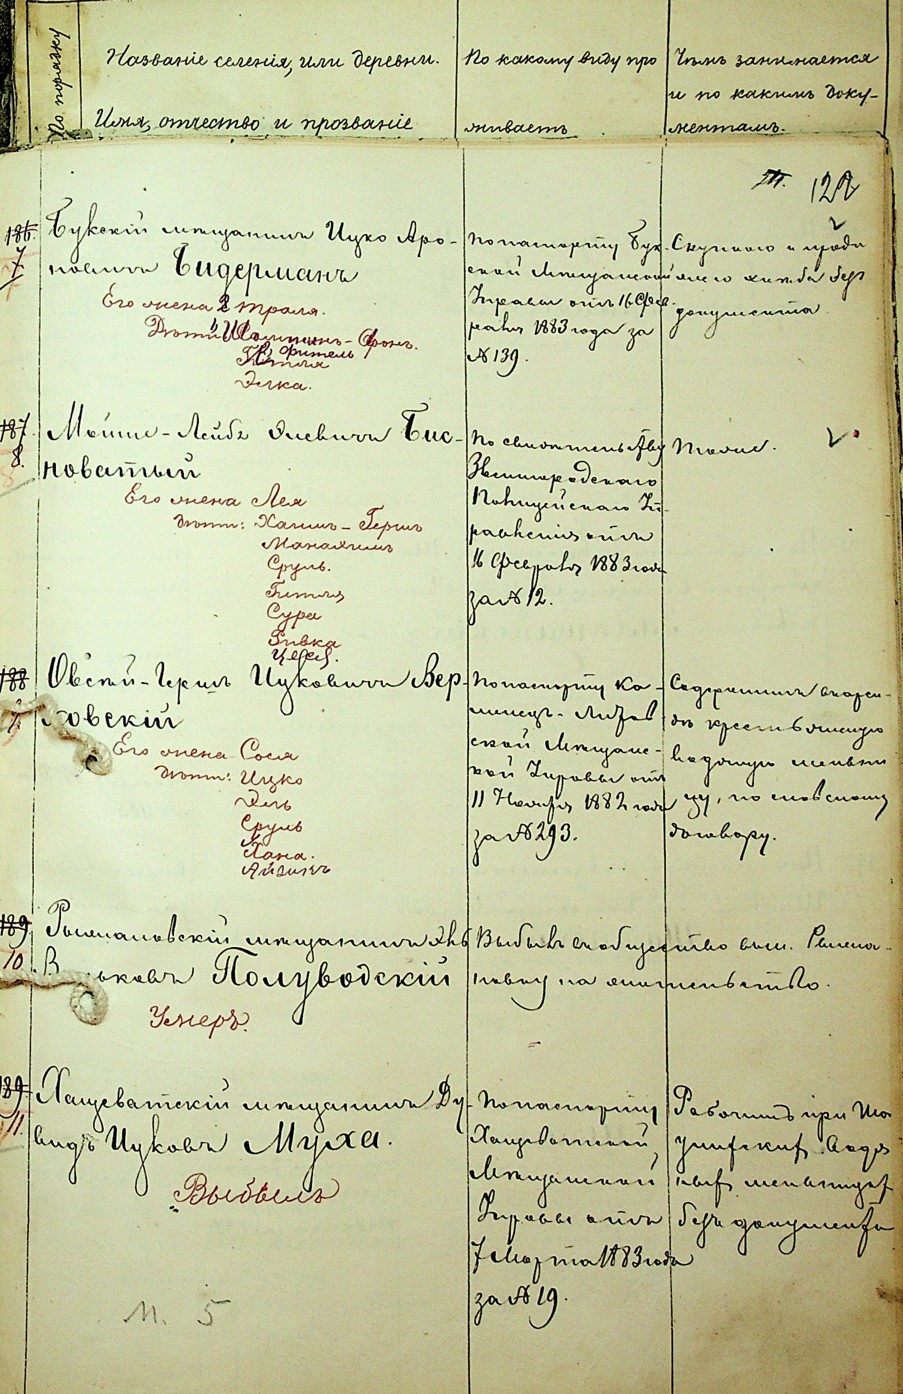 По порядку
Названіе селенія, или деревни.
Имя, отчество и прозваніе
По какому виду про
живаетъ
Чѣмъ занимается
и по какимъ доку-
ментамъ.
122
186.
7
Букскій мѣщанинъ Ицко Аро-
новичъ Бидерманъ
Его жена Этроля.
Дѣти:
Фроимъ.
Эстеръ
Элка.
По паспорту Бук-
ской Мѣщанской
Управы отъ 16 Фев-
раля 1883 года за
№ 139.
Скупкою и прода
жею хлѣба безъ
документа.
187
8.
Мошко-Лейба Элевичъ Бис-
новатый
Его жена Лея
Дѣти: Хаимъ-Гершъ
Манахимъ
Сруль.
Гитля
Сура
Ривка
По свидѣтельству
Звенигородскаго
Полицейскаго Уп-
равленія отъ
16 Февраля 1883 года
за № 12.
тоже.
188
Овсѣй-Гершъ Ицковичъ Вер-
ловскій
Его жена Сося
Дѣти: Ицко
Эль
Сруль
Хана.
Айзикъ
По паспорту Ка-
менецъ-
ской Мѣщанс-
кой Управы отъ
11 Ноября 1882 года
за № 293.
Содержитъ въ арен-
дѣ крестьянскую
водяную мельни
цу, по словесному
договору.
189
10
Рыжановскій мѣщанинъ
Полуводскій
Умеръ.
Выбылъ въ общество выш. Рыжа-
новку на жительство.
189.
11.
Хащеватскій мѣщанинъ Ду-
видъ Ицковъ Муха.
Выбылъ
По паспорту
Хащеватской
Мѣщанской
Управы отъ
7 Марта 1883 года
за № 19.
Рабочимъ при
водя
ныхъ мельницахъ
безъ документа
М. 5